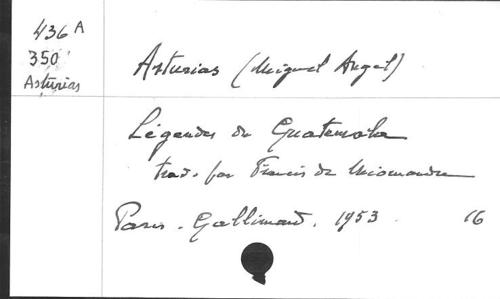 436 A
350
Asturias
Asturias (Miguel Angel)
Légendes du Guatemala
trad. par Francis de Miomandre
Paris. Gallimard. 1953. 16